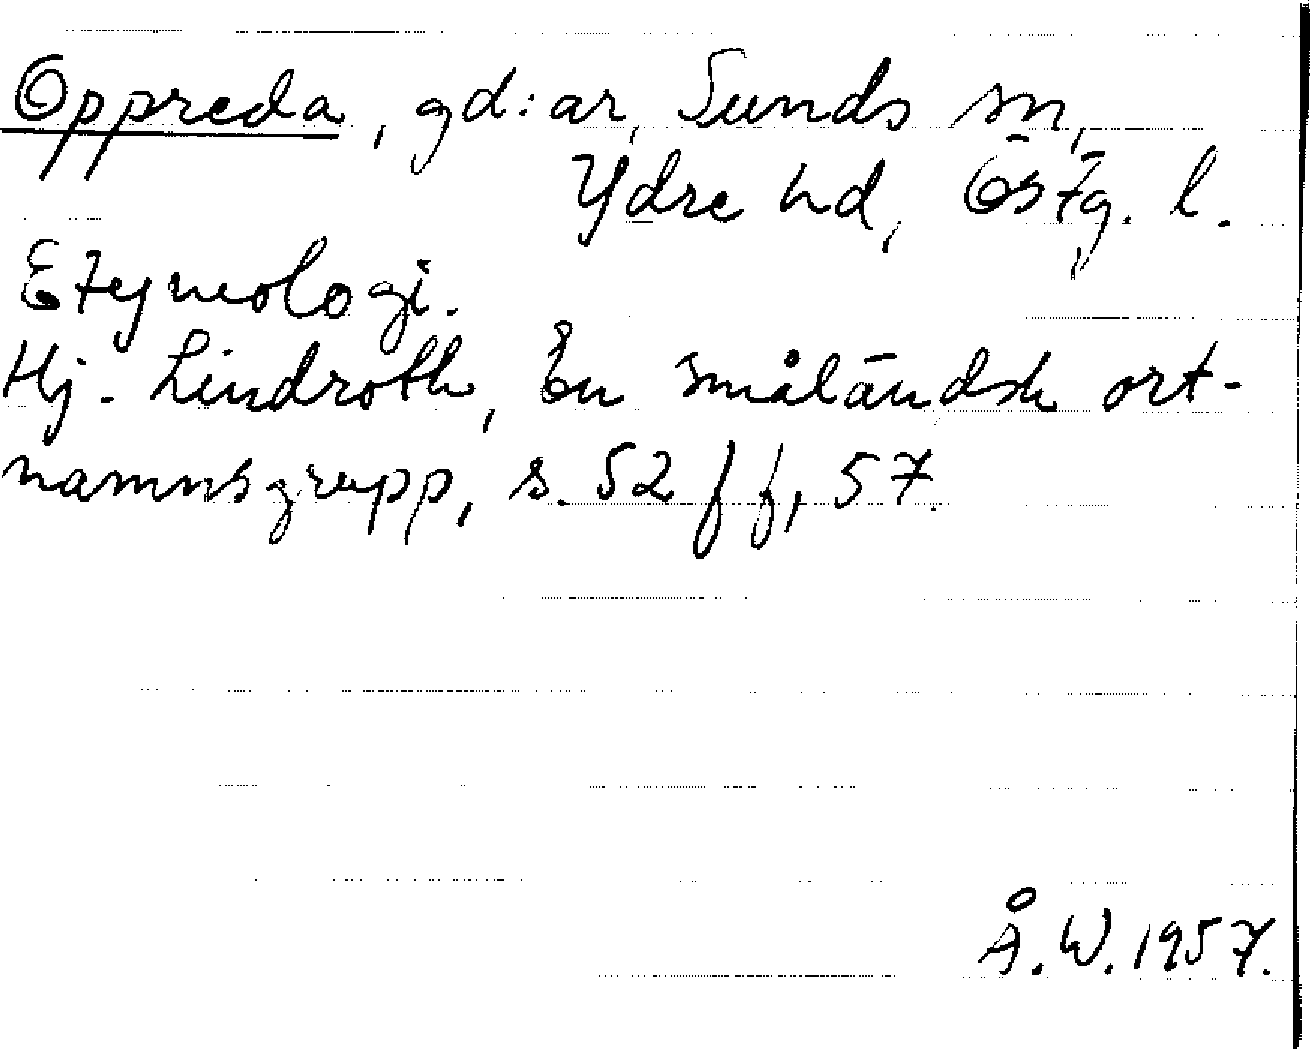 Oppreda, gd:ar, Sunds sn,
Ydre hd, Östg. l.
Etymologi.
Hj. Lindroth, En småländsk ort-
namnsgrupp, s. 52 ff, 57.
Å. W. 1957.